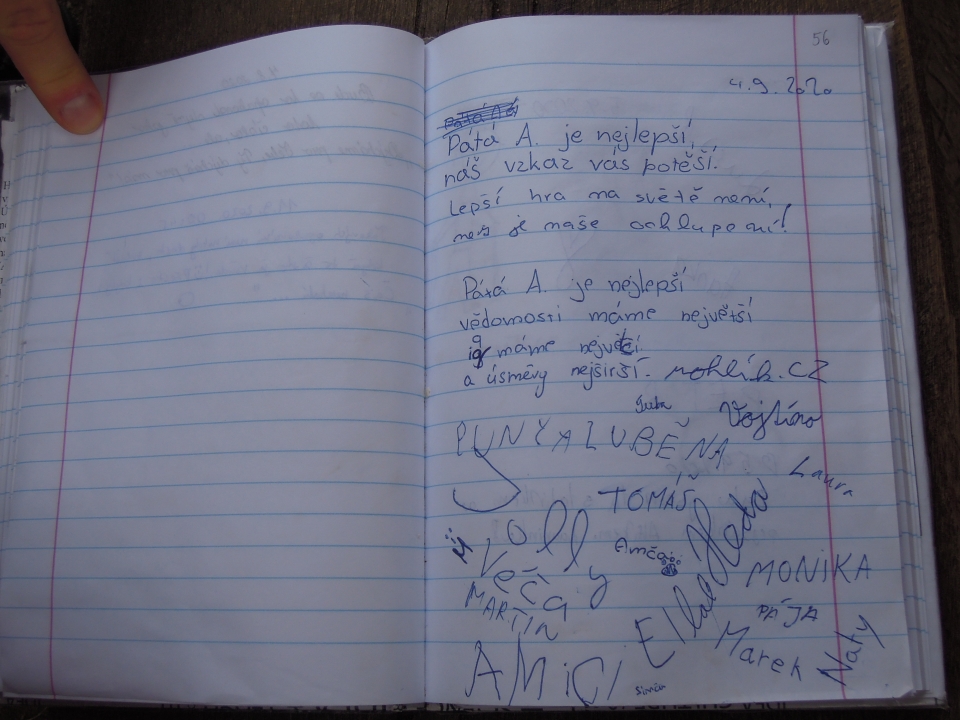 56
4.9.2020
Pátá A. je nejlepší,
náš vzkaz vás potěší.
Lepší hra na světě není,
než je naše ochlupení!
Pátá A. je nejlepší
vědomosti máme největší
iq máme největčí
a úsměvy nejširší. rohlík.CZ
Vojtíno
LUBĚNA
Laura
TOMÁŠ
Jolly
Heda
Amča
Veča
MONIKA
MARTIN
Ella
PÁJA
Marek
Naty
AMiCI
Simča